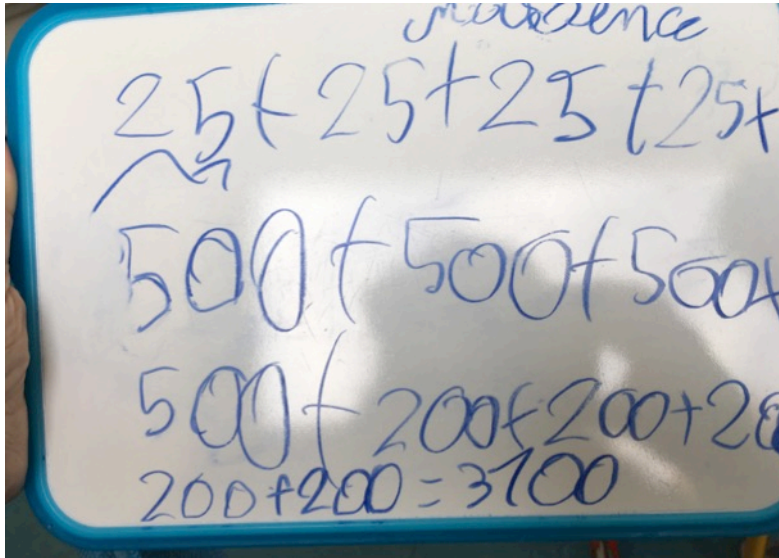 25+25+25+25+
500+500+500+
500+200+200+20
200+200=3100